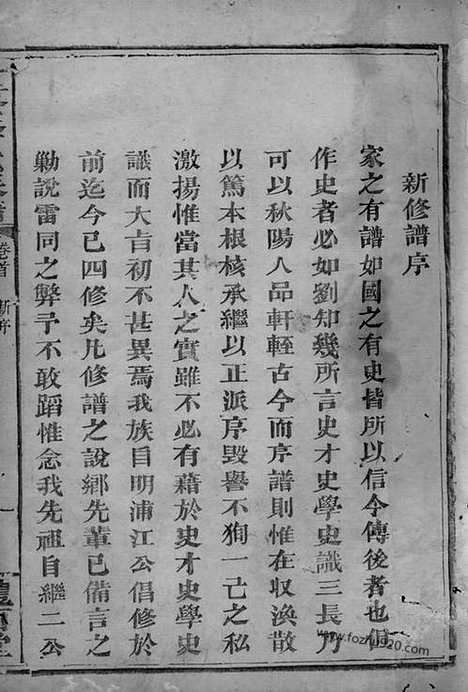 新修譜序
家之有譜如國之有史皆所以信今傳後者也但
作史者必如劉知幾所言史才史學史識三長乃
可以秋陽人品軒輊古今而序譜則惟在収渙散
以篤本根核承繼以正派序毀譽不狥一己之私
激揚惟當其人之實雖不必有藉於史才史學史
識而大㫖初不甚異焉我族自明浦江公倡修於
前迄今已四修矣凡修譜之說鄉先輩已備言之
勦說雷同之弊予不敢蹈惟念我先祖自繼二公
卷首
新序
www.fozhu920.com